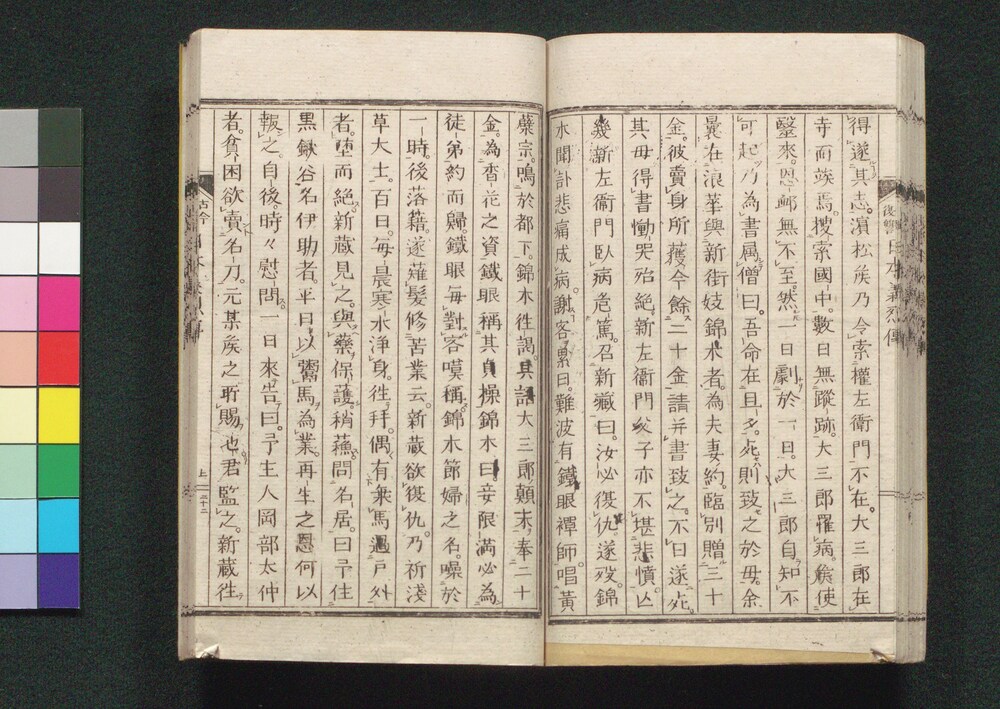 得遂其志。濵松矦乃令索權左衛門不在。大三郎在
寺而竢焉。搜索國中。數日無蹤跡。大三郎罹病。矦使
毉來。恩邺無不至。然一日劇於一日。大三郎自知不
可起。乃為書属僧曰。吾命在旦夕。死則致之於母。余
曩在浪華與新街妓錦木者。為夫妻約。臨別贈三十
金。彼賣身所獲今餘二十金請并書致之。不日遂死。
其母得書慟哭殆絶。新左衞門父子亦不堪悲憤。亾
幾新左衛門臥病危篤。召新藏曰。汝必復仇。遂歿。錦
木聞訃悲痛成病。謝客累日。難波有鐵眼禪師。唱黃
蘗宗。鳴於都下。錦木徃謁。具語大三郎顛末。奉二十
金。為香花之資鐵眼稱其貞操錦木曰。妾限滿必為
徒弟約而歸。鐵眼毎對客嘆稱。錦木節婦之名。噪於
一時。後落籍。遂薙髮修苦業云。新蔵欲復仇。乃祈淺
草大士。百日。毎晨寒水淨身。徃拜。偶有乗馬過戸外
者。堕而絶。新蔵見之。與藥保護。稍蘓問名居。曰予住
黒鍬谷名伊助者。平日以鬻馬為業。再生之恩何以
報之。自後。時々慰問。一日來告曰。予主人岡部太仲
者。貧困欲賣名刀。元某矦之所賜也。君監之。新蔵徃
復讐
古今
日本義烈傳
上
二十二